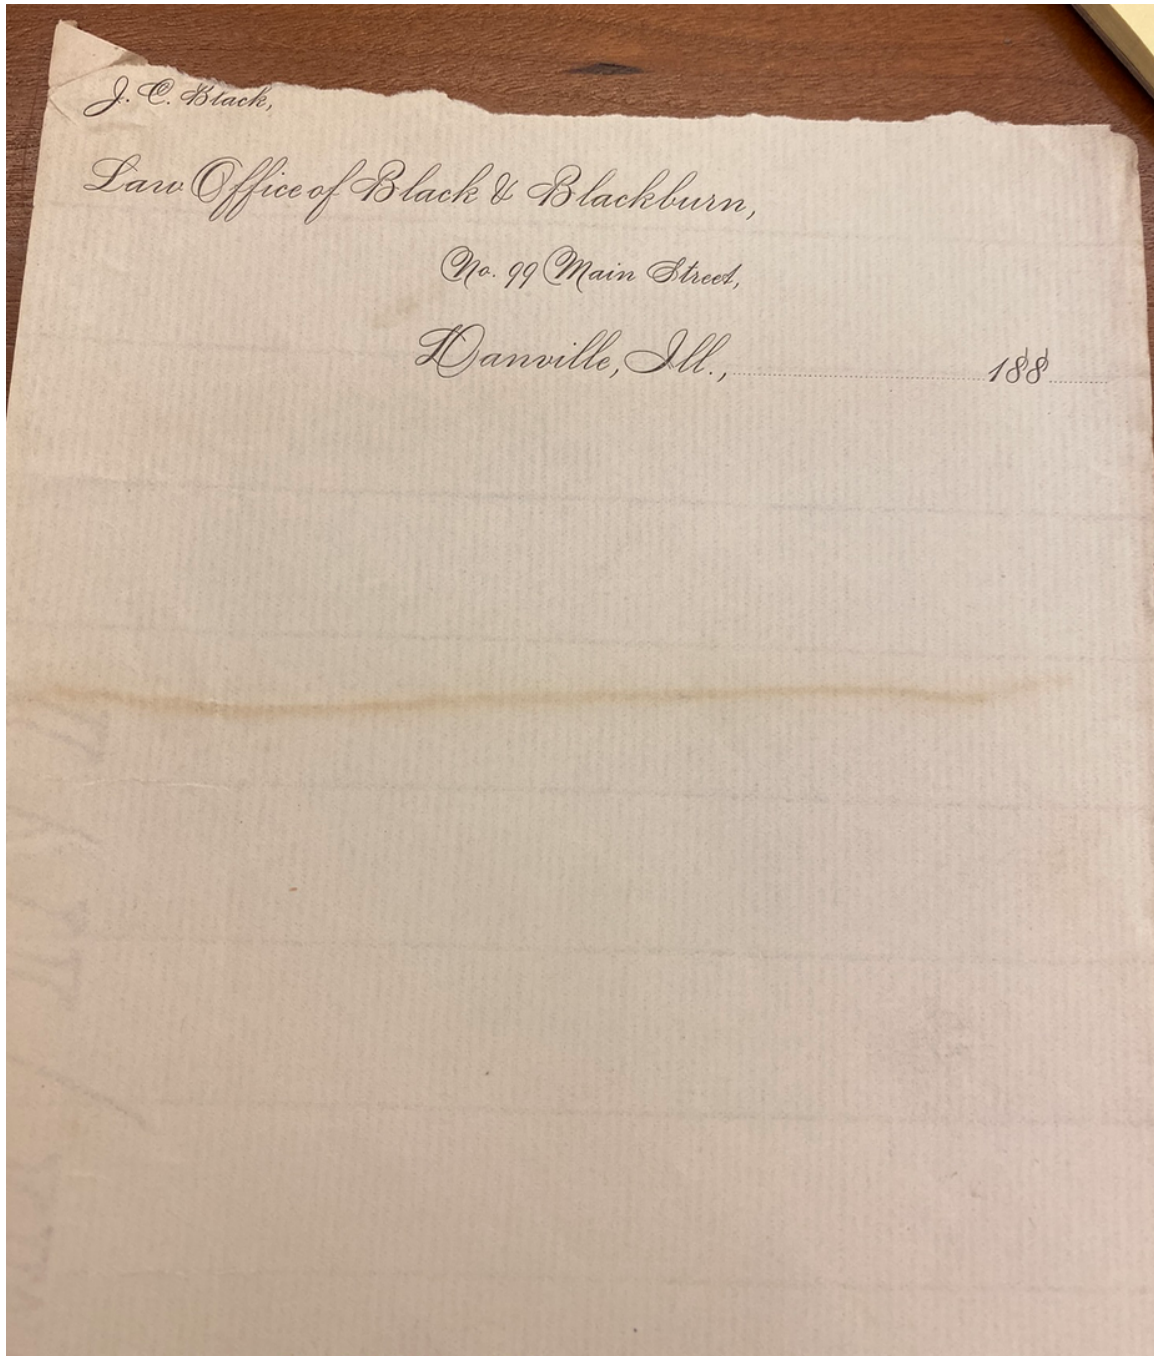 J. C. Black,
Law Office of Black & Blackburn,
No. 99 Main Street,
Danville, Ill., 188